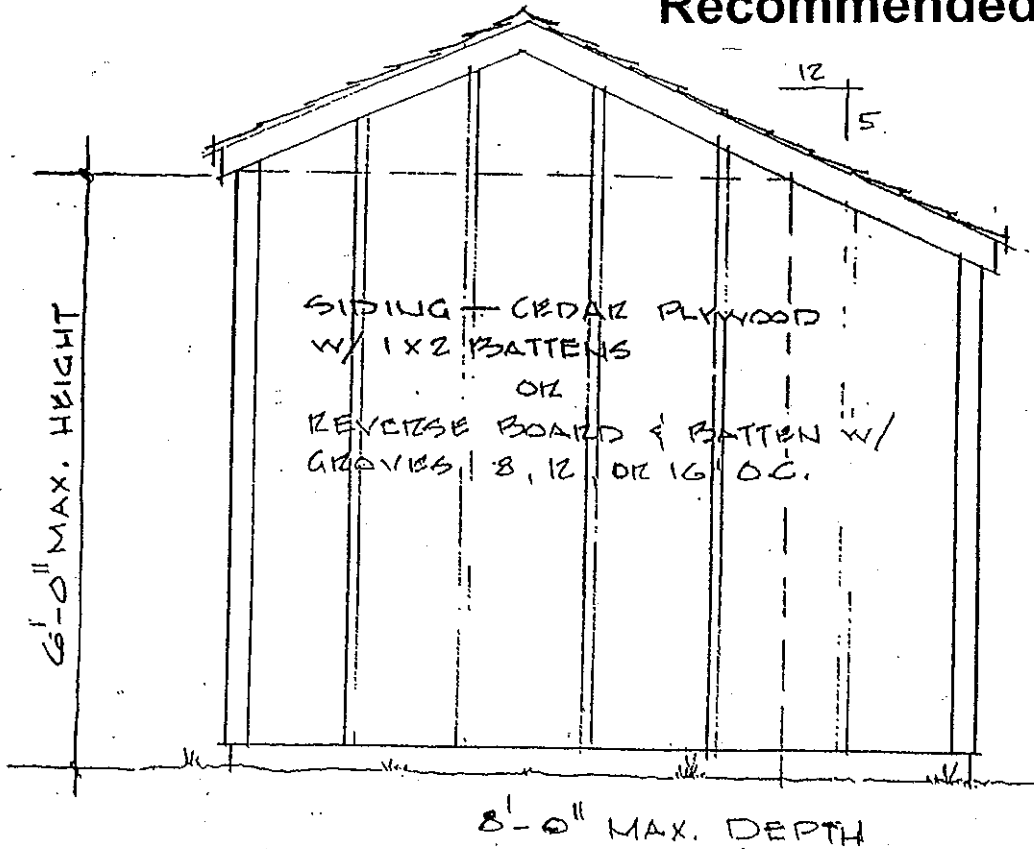 Recommended
12
5
6'-0" MAX. HEIGHT
SIDING - CEDAR PLYWOOD
W/ 1X2 BATTENS
OR
REVERSE BOARD & BATTEN W/
GROVES, 8, 12 OR 16" O.C.
8'-0" MAX. DEPTH